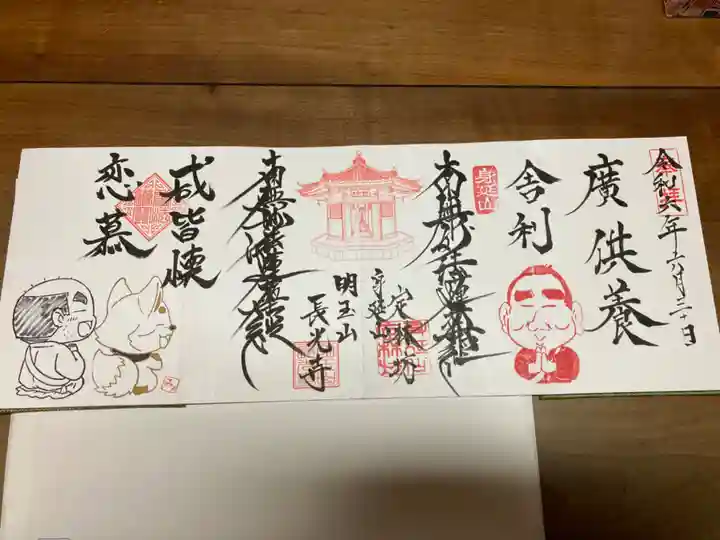 奉拝
令和六年六月二十日
廣供養
舎利
身延山
南無妙法蓮華経
身延山
定林坊
明王山
長光寺
南無妙法蓮華経
咸皆懐
恋慕